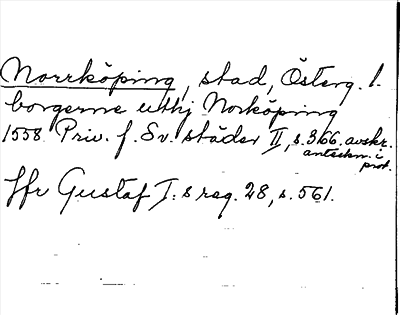 Norrköping, stad, Österg. l.
borgerne uthj Norköping
1558 Priv. f. Sv. städer II, s. 366. avskr.
anteckn. i
prot.
Jfr Gustaf I:s reg. 28, s. 561.